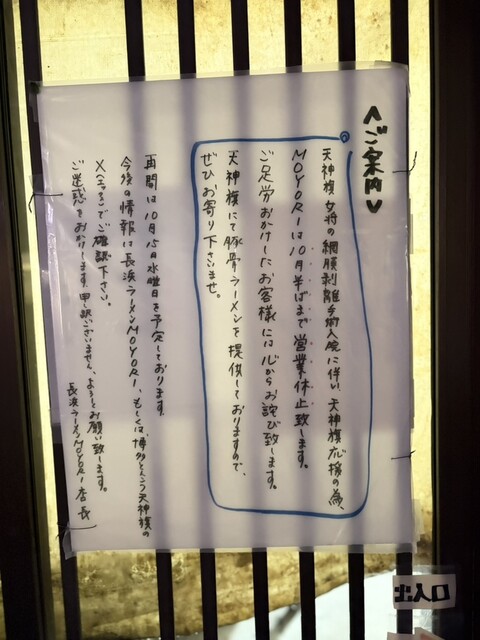 ＜ご案内＞
天神旗女将の網膜剥離手術入院に伴い、天神旗応援の為、
MOYORIは10月半ばまで営業休止致します。
ご足労おかけしたお客様には心からお詫び致します。
天神旗にて豚骨ラーメンを提供しておりますので、
ぜひお寄り下さいませ。
再開は10月15日水曜日を予定しております。
今後の情報は長浜ラーメンMOYORI、もしくは、博多とんこつ天神旗の
X(エックス)でご確認下さい。
ご迷惑をおかけします。申し訳ございません、よろしくお願い致します。
長浜ラーメンMOYORI 店長
出入口